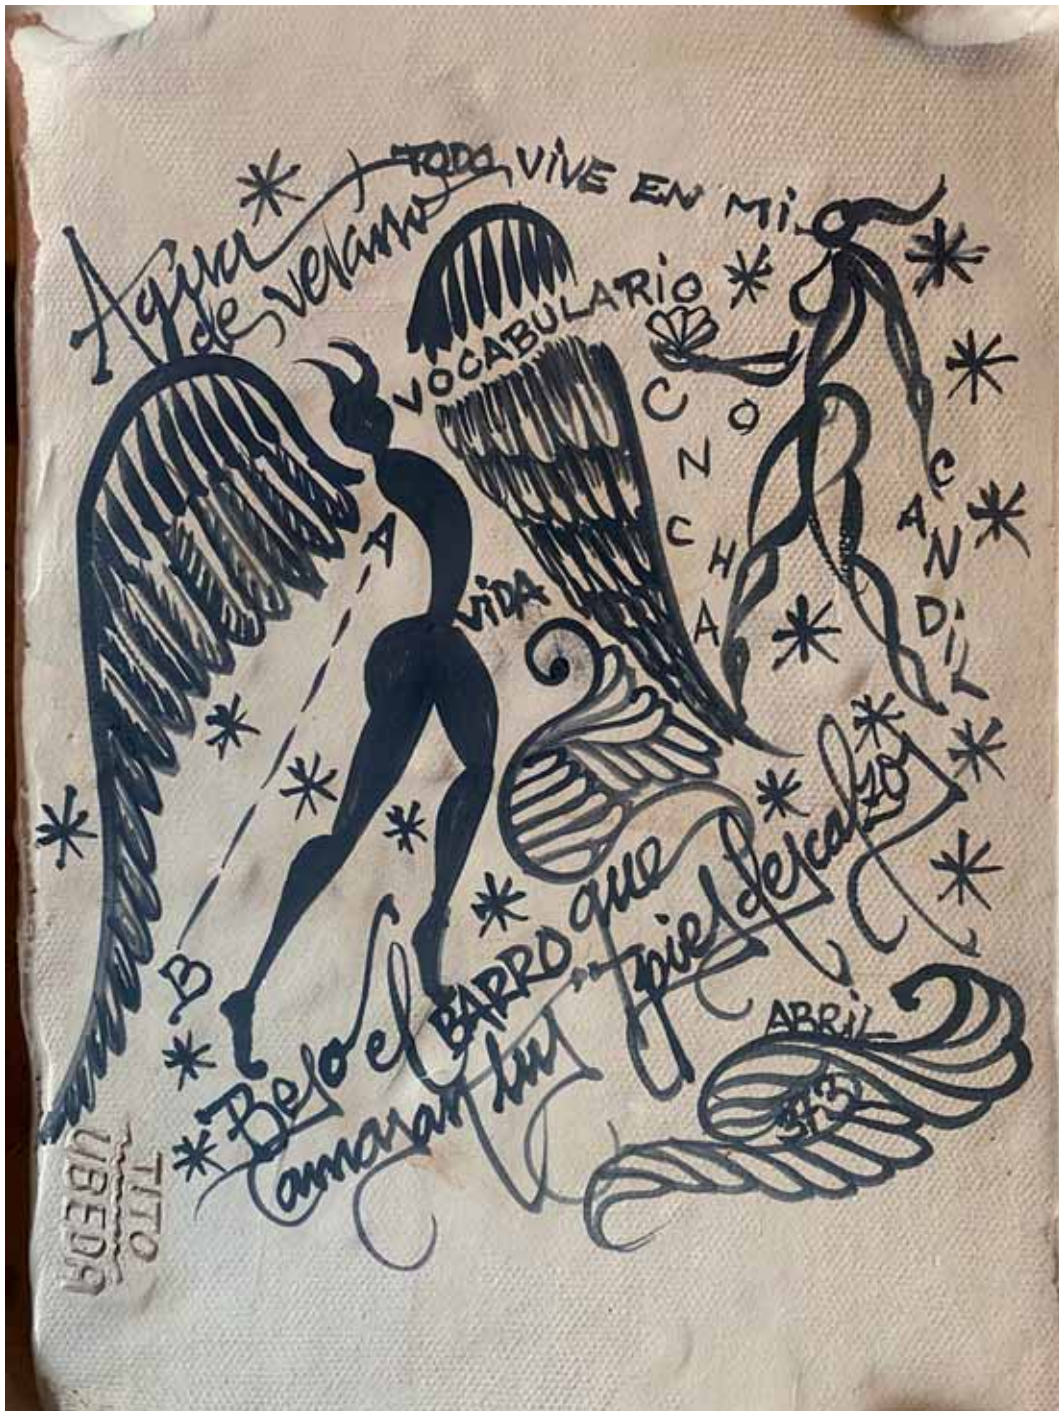 TODO VIVE EN MI
Agua
de verano
VOCABULARIO
CONCHA
CANDIL
A
VIDA
B
Beso el BARRO que
amasan tus pies descalzos
ABRIL
TITO
UBEDA